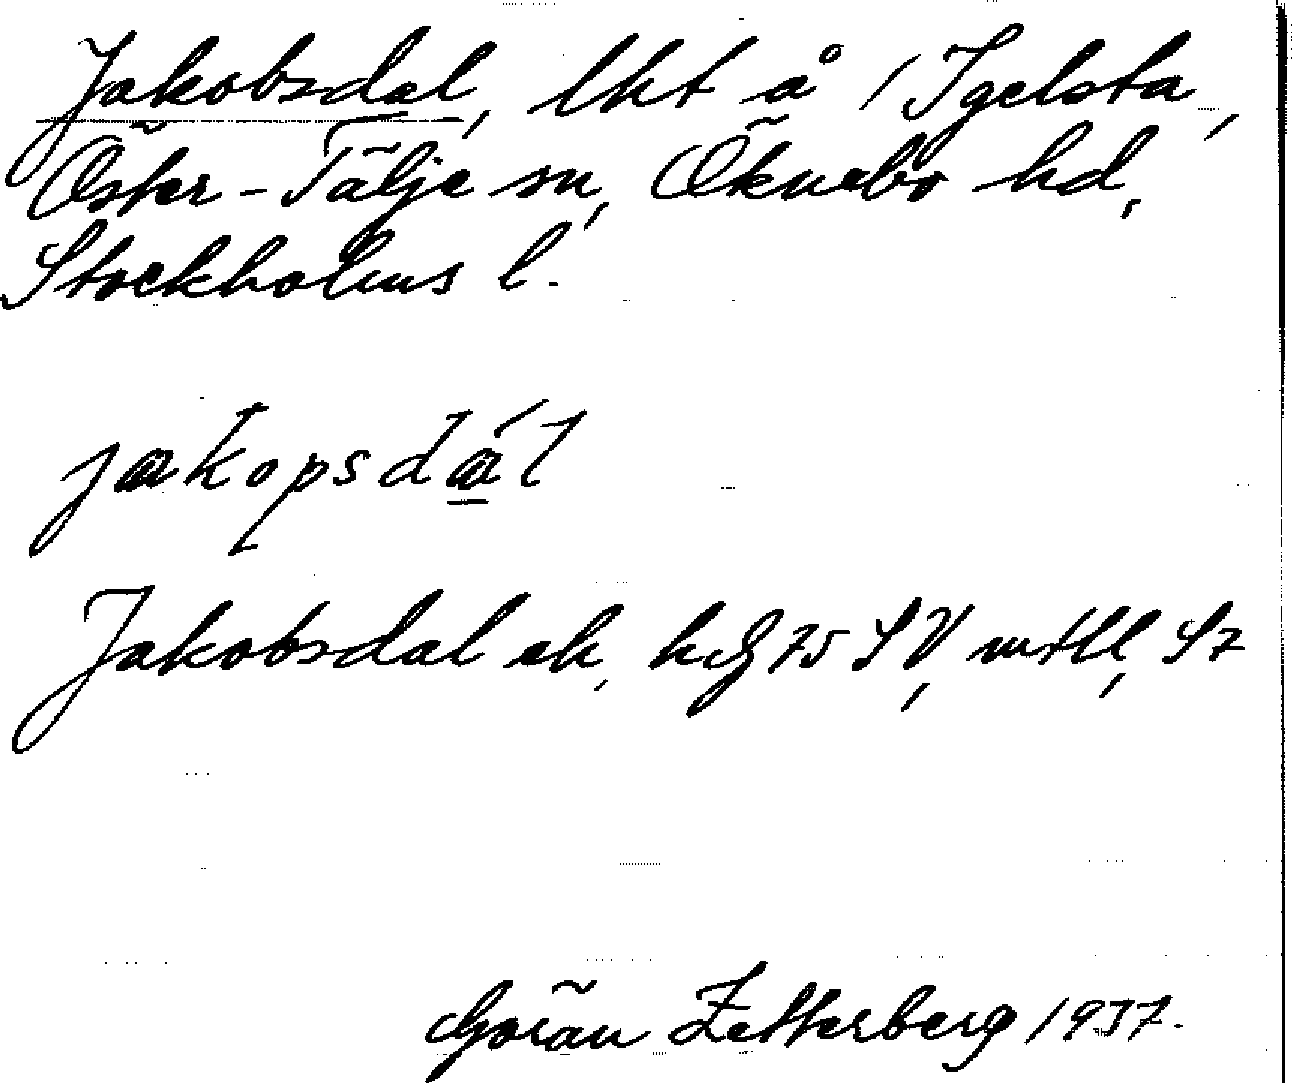 Jakobsdal, lht å 1 Igelsta,
Öster-Tälje sn, Öknebo hd,
Stockholms l.
jakopsdál
Jakobsdal ek, 75 SV, Sz
Göran Zetterberg 1937.